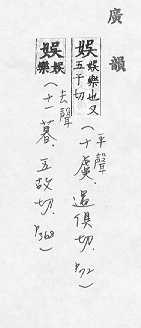 廣韻
娛 娛樂也又
五于切
(十虞、遇俱切. P72)
平聲
娛 娛
樂
(十一暮、五故切. P368)
去聲